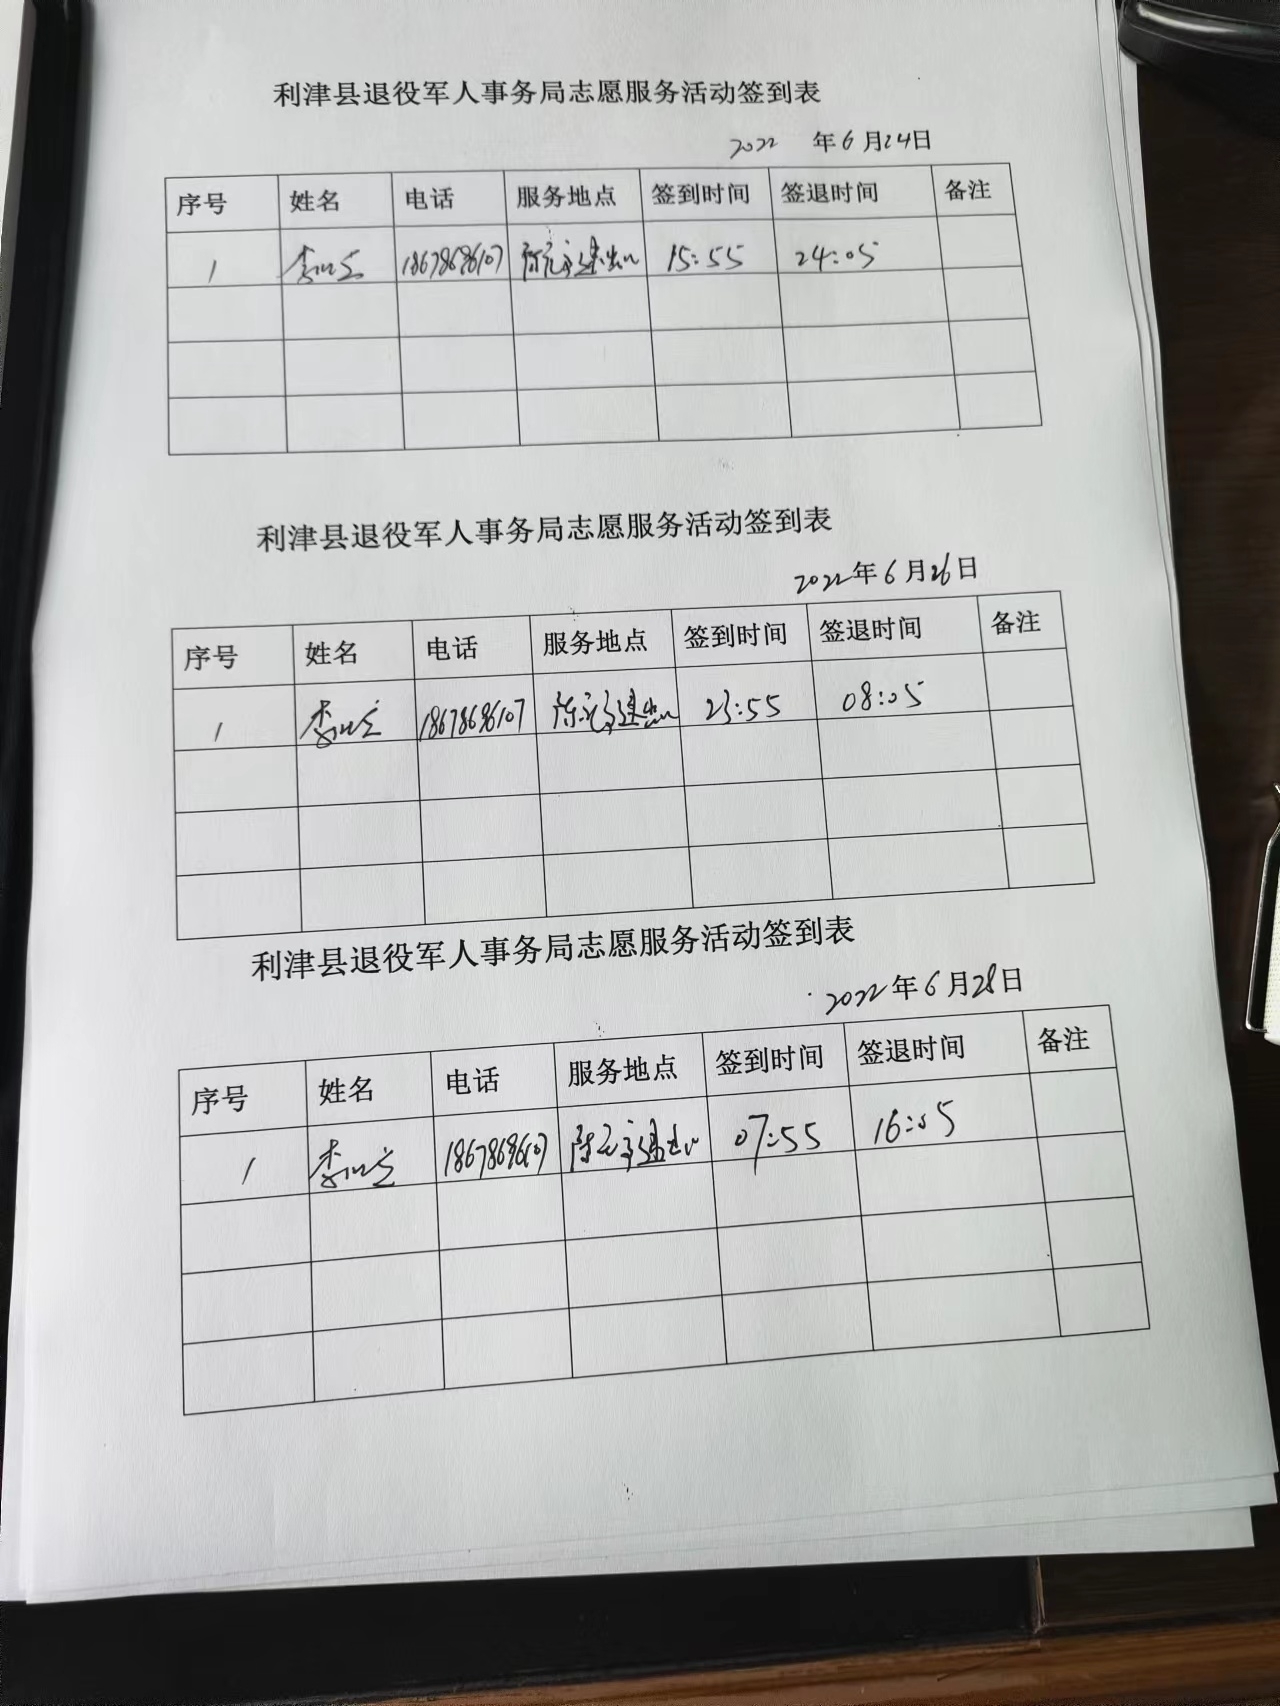 利津县退役军人事务局志愿服务活动签到表
2022 年6月24日
序号 姓名 电话 服务地点 签到时间 签退时间 备注
1 18678686107 15:55 24:05
利津县退役军人事务局志愿服务活动签到表
2022年6月26日
序号 姓名 电话 服务地点 签到时间 签退时间 备注
1 18678686107 23:55 08:05
利津县退役军人事务局志愿服务活动签到表
2022年6月28日
序号 姓名 电话 服务地点 签到时间 签退时间 备注
1 18678686107 07:55 16:05